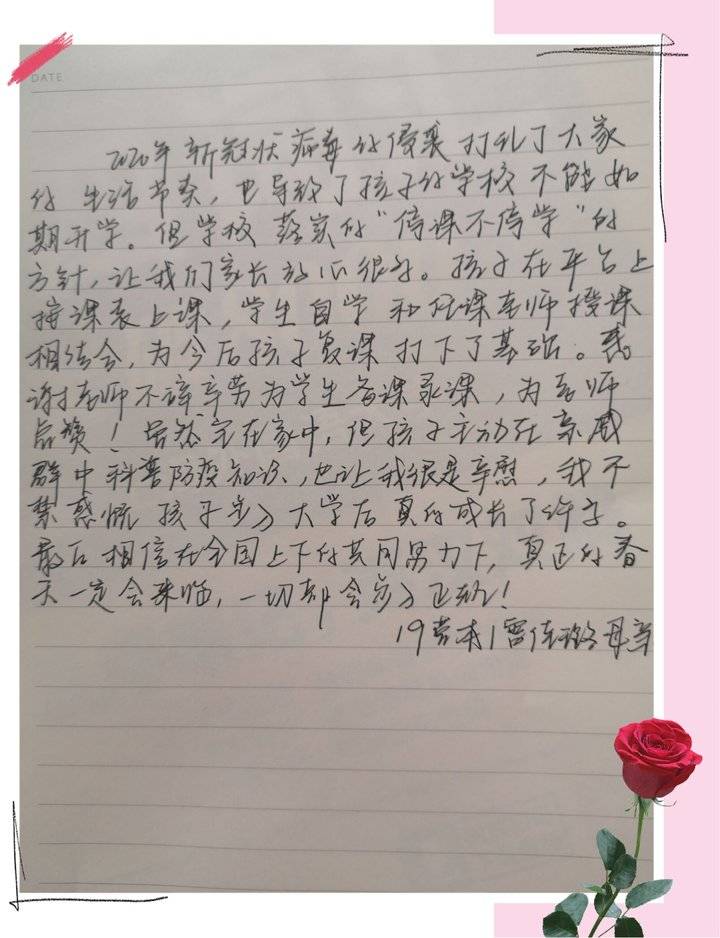 DATE
2020年新冠状病毒的侵袭打乱了大家
的生活节奏，也导致了孩子的学校不能如
期开学。但学校落实的“停课不停学”的
方针，让我们家长放心很多。孩子在平台上
按课表上课，学生自学和任课老师授课
相结合，为今后孩子复课打下了基础。感
谢老师不辞辛劳为学生备课录课，为老师
点赞！虽然宅在家中，但孩子主动在亲戚
群中科普防疫知识，也让我很是欣慰，我不
禁感慨孩子步入大学后真的成长了许多。
最后相信在全国上下的共同努力下，真正的春
天一定会来临，一切都会步入正轨！
19营本1雷佳璐母亲